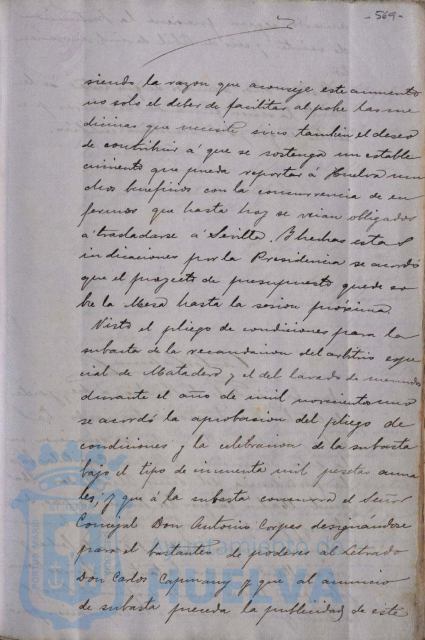 -569-
siendo la razon que aconseje este aumento
no solo el deber de facilitar al pobre las me
dicinas que necesite sino tambien el deseo
de contribuir á que se sostenga un estable
cimiento que pueda reportar á Huelva mu
chos beneficios con la concurrencia de en
fermos que hasta hoy se veian obligados
á trasladarse á Sevilla. Y hechas estas
indicaciones por la Presidencia se acordó
que el proyecto de presupuesto quede so
bre la Mesa hasta la sesion próxima.
Visto el pliego de condiciones para la
subasta de la recaudacion del arbitrio espe
cial de Matadero y el del lavado de menudos
durante el año de mil novecientos uno
se acordó la aprobacion del pliego de
condiciones y la celebracion de la subasta
bajo el tipo de cincuenta mil pesetas anua
les; y que á la subasta concurra el Señor
Concejal Don Antonio Corpes designandose
para el bastanteo de poderes al Letrado
Don Carlos Capmany y que al anuncio
de subasta preceda la publicidad de este
Ayuntamiento de
HUELVA